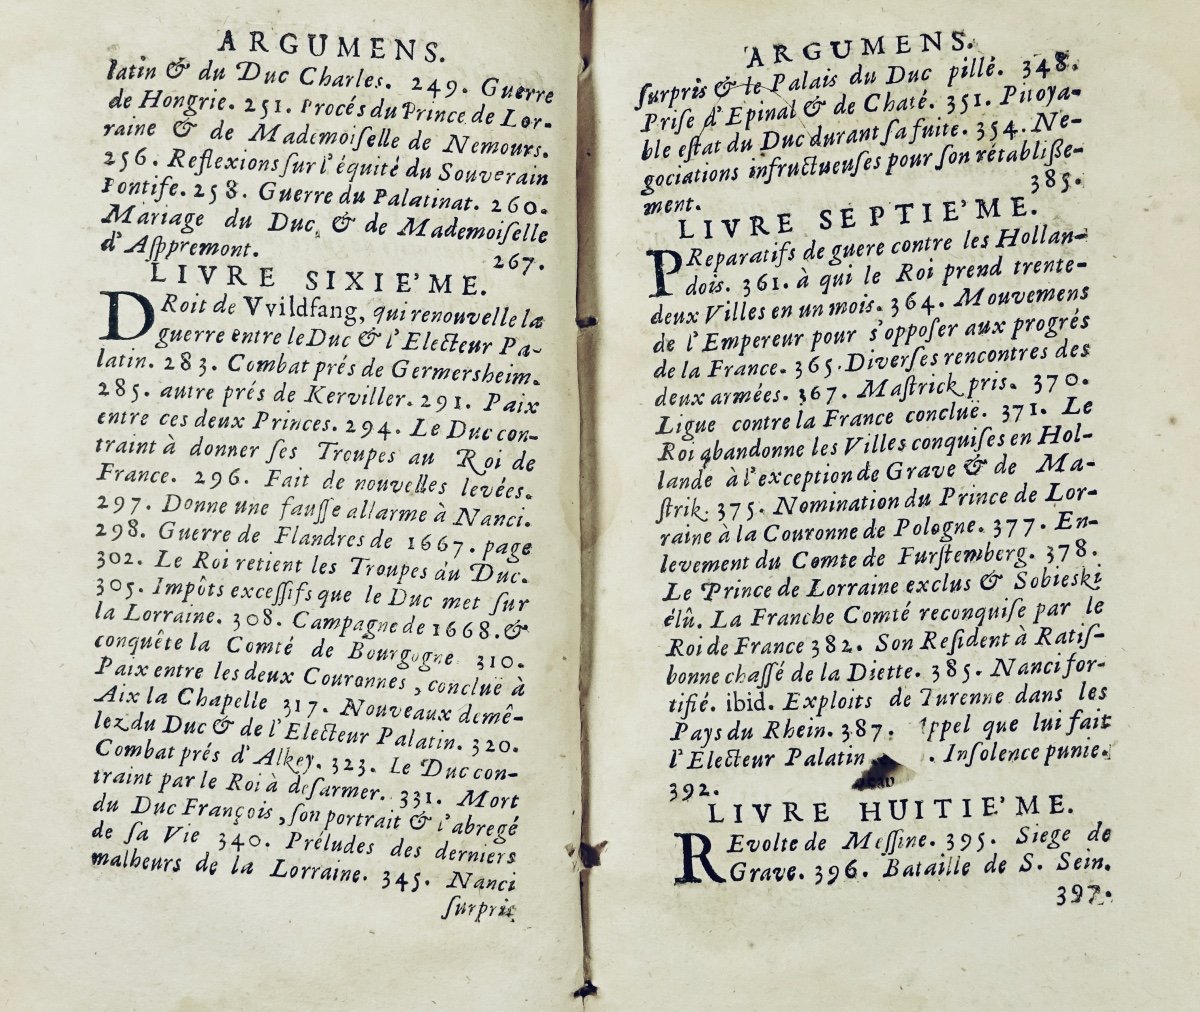 ARGUMENS.
latin & du Duc Charles. 249. Guerre
de Hongrie. 251. Procés du Prince de Lor-
raine & de Mademoiſelle de Nemours.
256. Reflexions ſur l'équité du Souverain
Pontife. 258. Guerre du Palatinat. 260.
Mariage du Duc, & de Mademoiſelle
d'Aſppremont. 267.
LIVRE SIXIE'ME.
DRoit de VVildfang, qui renouvelle la
guerre entre le Duc & l'Electeur Pa-
latin. 283. Combat prés de Germersheim.
285. autre prés de Kerviller. 291. Paix
entre ces deux Princes. 294. Le Duc con-
traint à donner ſes Troupes au Roi de
France. 296. Fait de nouvelles levées.
297. Donne une fauſſe allarme à Nanci.
298. Guerre de Flandres de 1667. page
302. Le Roi retient les Troupes du Duc.
305. Impôts exceſſifs que le Duc met ſur
la Lorraine. 308. Campagne de 1668. &
conquête la Comté de Bourgogne 310.
Paix entre les deux Couronnes, concluë à
Aix la Chapelle 317. Nouveaux demê-
lez du Duc & de l'Electeur Palatin. 320.
Combat prés d'Alkey. 323. Le Duc con-
traint par le Roi à deſarmer. 331. Mort
du Duc François, ſon portrait & l'abregé
de ſa Vie 340. Préludes des derniers
malheurs de la Lorraine. 345. Nanci
ſurpris
ARGUMENS.
ſurpris & le Palais du Duc pillé. 348.
Priſe d'Epinal & de Chaté. 351. Pitoya-
ble eſtat du Duc durant ſa fuite. 354. Ne-
gociations infructueuſes pour ſon rétabliße-
ment. 385.
LIVRE SEPTIE'ME.
PReparatifs de guere contre les Hollan-
dois. 361. à qui le Roi prend trente-
deux Villes en un mois. 364. Mouvemens
de l'Empereur pour s'oppoſer aux progrés
de la France. 365. Diverſes rencontres des
deux armées. 367. Maſtrick pris. 370.
Ligue contre la France concluë. 371. Le
Roi abandonne les Villes conquiſes en Hol-
lande à l'exception de Grave & de Ma-
ſtrik. 375. Nomination du Prince de Lor-
raine à la Couronne de Pologne. 377. En-
levement du Comte de Furſtemberg. 378.
Le Prince de Lorraine exclus & Sobieski
élû. La Franche Comté reconquiſe par le
Roi de France 382. Son Reſident à Ratiſ-
bonne chaſſé de la Diette. 385. Nanci for-
tifié. ibid. Exploits de Turenne dans les
Pays du Rhein. 387. que lui fait
l'Electeur Palatin . Inſolence punie.
392.
LIVRE HUITIE'ME.
REvolte de Meſſine. 395. Siege de
Grave. 396. Bataille de S. Sein.
397.